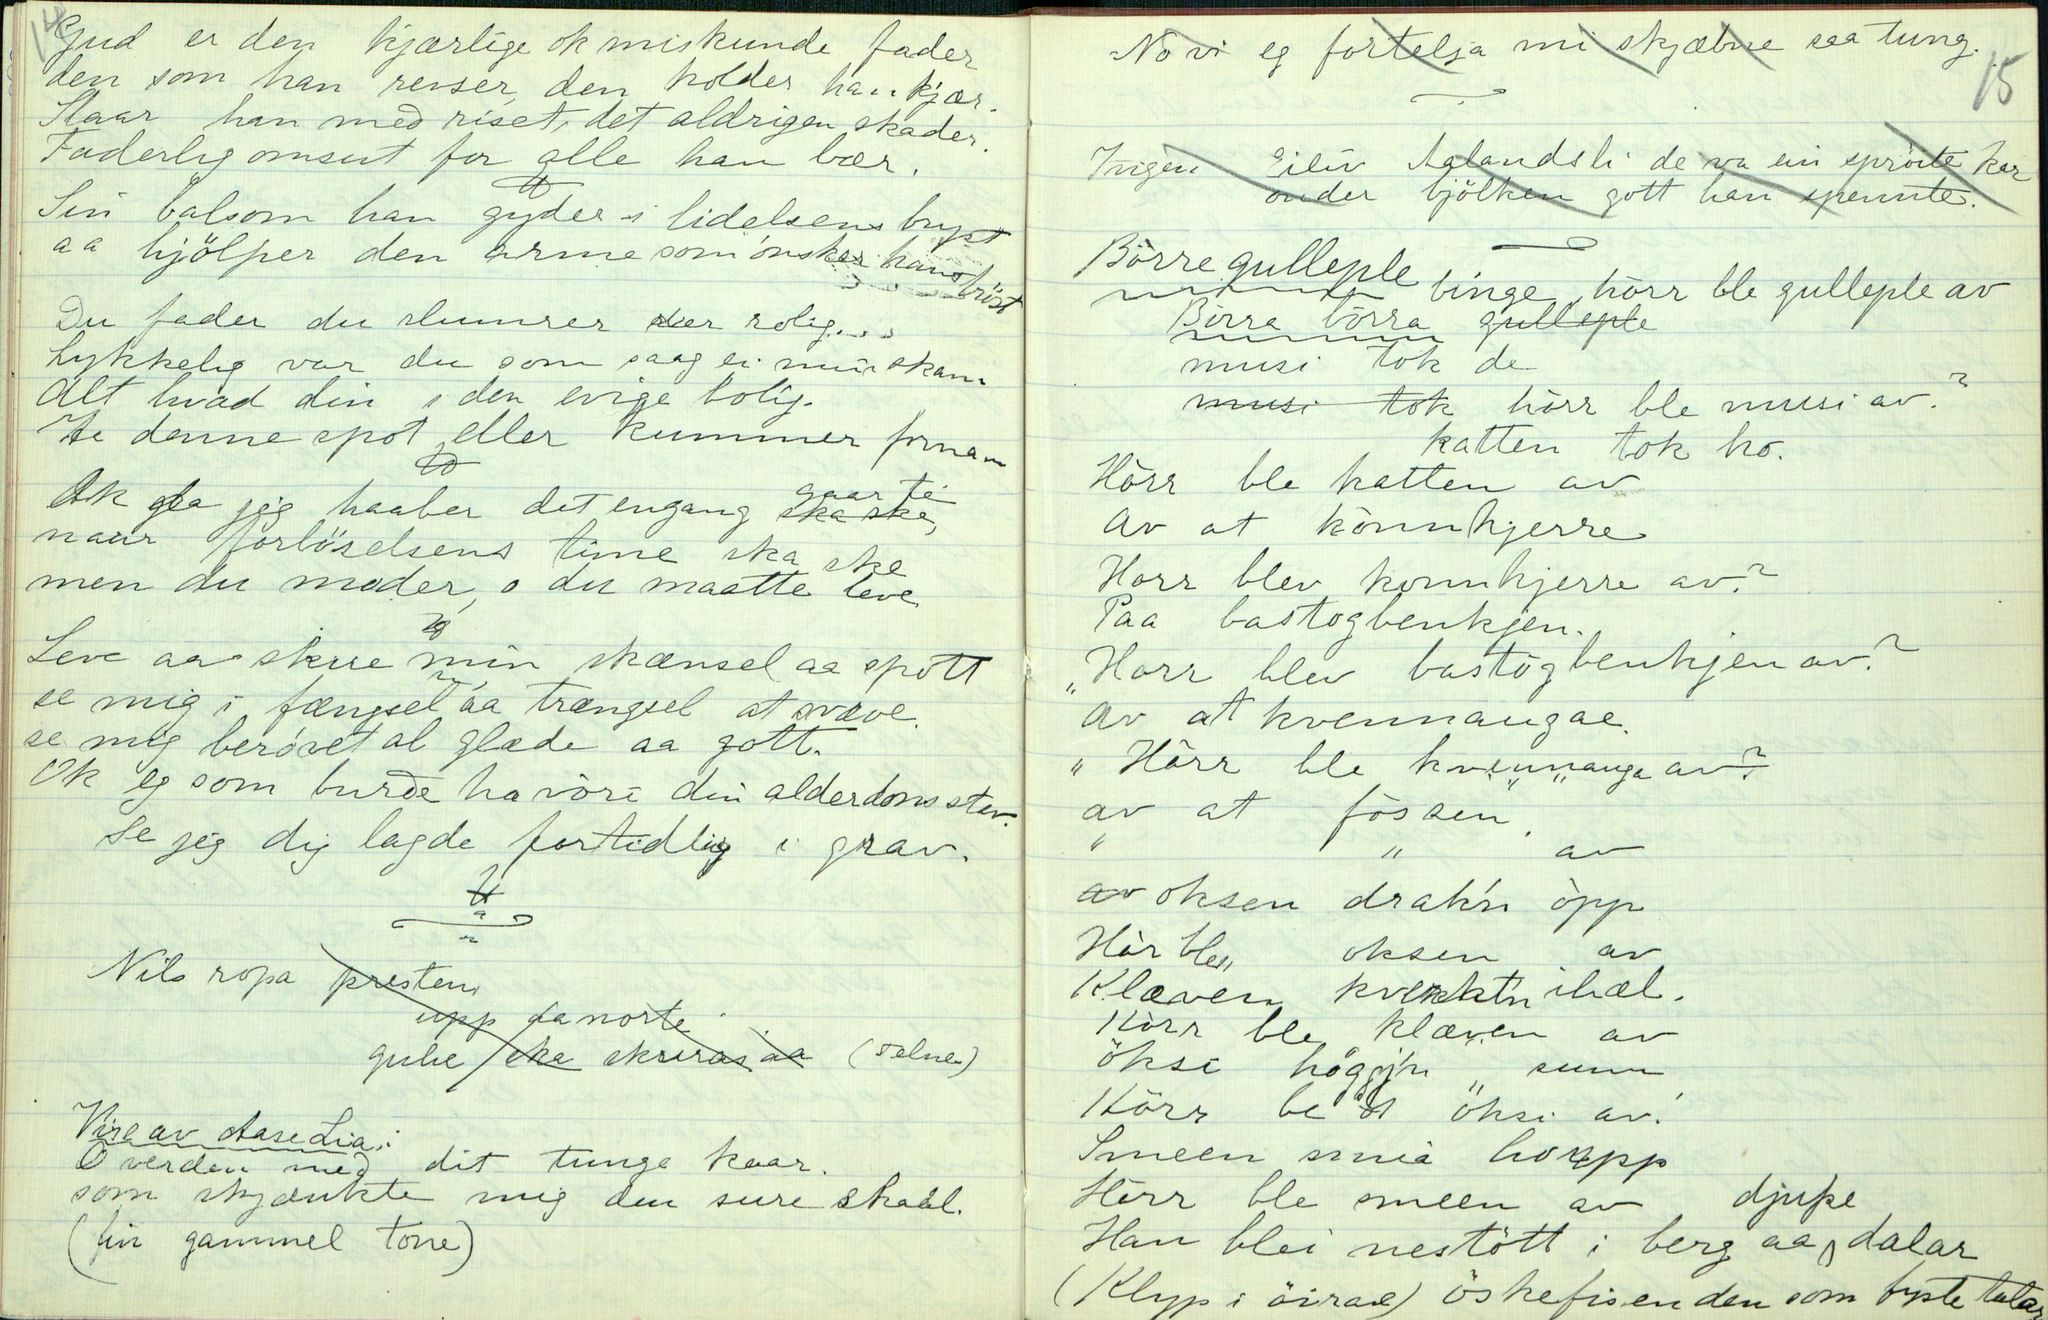 14
Gud er den kjærlige ok miskunde fader
den som han renser, den holder han kjær.
Slaar han med riset, det aldrigen skader.
Faderlig omsut for alle han bær.
Sin balsom han gyder i lidelsens bryst
aa hjölper den arme som ónsker hans tröst
Du fader du slumrer der rolig...
Lykkelig var du som saag ei min skam
Alt hvad din i den evige bolig.
Ei denne spot eller kummer fornam
Ak gla jeg haaber det engang gaar te
ska ske,
naar forlöselsens time ska ske
men du moder, o du maatte leve
Leve aa skue min skænsel aa spott
se mig i fængsel aa trængsel at svæve.
se mig beróvet al glæde aa gott.
Ok eg som burde ha vóri din alderdoms stav.
Se jeg dig lagde fortidlig i grav.
Nils ropa presten
upp da norte
gube ska skrivas aa (Telnes)
Vise av Aase Lia:
O verden med dit tunge kaar.
som skjænkte mig den sure skaal.
(fin gammel tone)
15
No vi eg fortelja mi skjæbne saa tung.
Ingen Eiliv Aalandsli de va ein spröite kar
onder bjölken gott han spennte.
Börre gulleple binge, hòrr ble gulleple av
Börra börra gulleple
musi tok de
musi tok hòrr ble musi av?
katten tok ho.
Hòrr ble katten av
Av at kònnkjerre
Horr blev konnkjerre av?
Paa bastogbenkjen.
"Horr blev bastogbenkjen av?
Av at kvennaugae.
" Hòrr ble kvennauga av?
av at fòssen
" " av
av oksen drak'n òpp
Hòr ble" oksen av
Klæven kvekkt'n ihæl.
Hòrr ble klæven av
öksi höggj'n sunn
Hòrr be öksi av!
Smeen smia ho opp
Hòrr ble smeen av
Han blei nestött i berg aa djupe dalar
(Klyp i öirae) öskefisen den som fyste talar